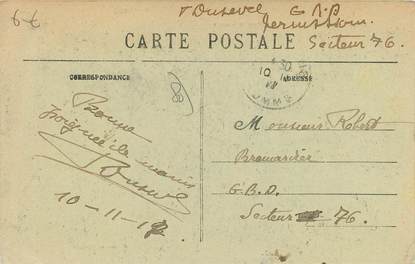 6€
Dusevel G.B.D
CARTE POSTALE
Secteur 76.
CORRESPONDANCE
ADRESSE
SOMME
Bonne
poignée de mains
Dusevel
10-11-17
Monsieur Robert
G.B.D.
Secteur 76.